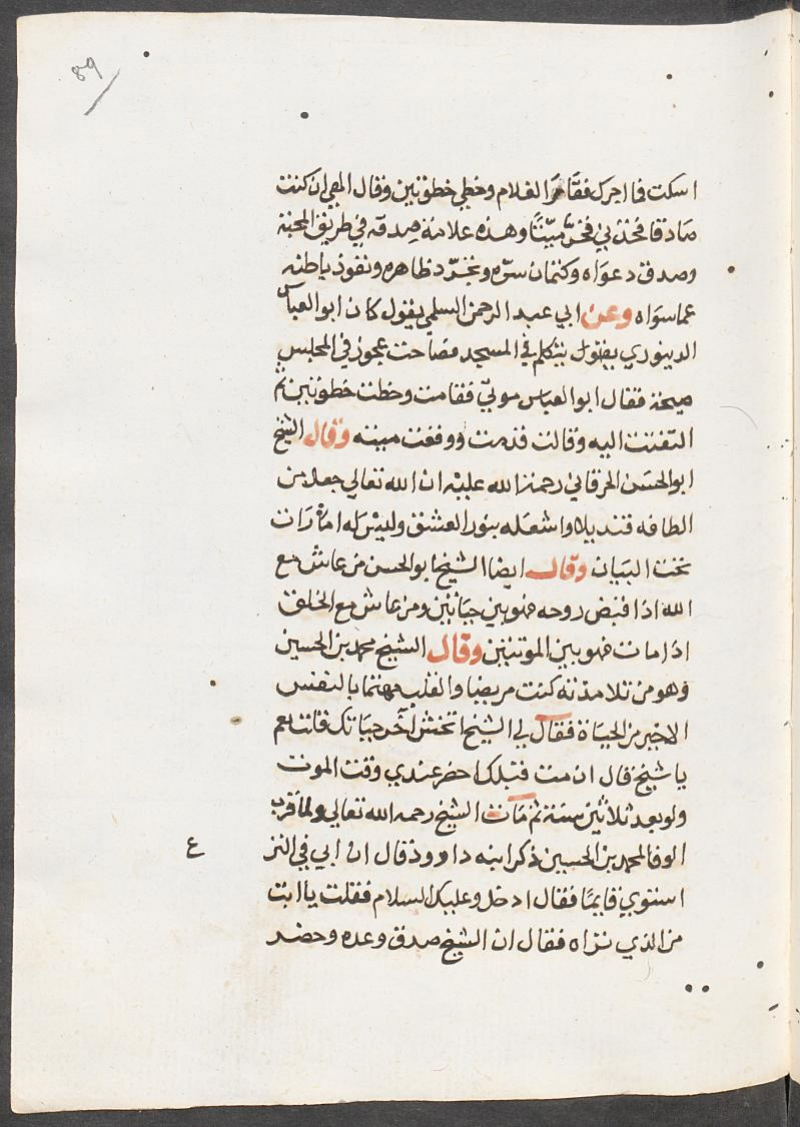 ٨٩
اسكت فما اجرك فقام الغلام وخطي خطوتين وقال الهي ان كنت
صادقا فخذني فخر ميتًا وهذه علامة صدقه في طريق المحبة
وصدق دعواه وكتمان سره وتجرد ظاهره ونفوذ باطنه
عما سواه وعن ابي عبد الرحمن السلمي يقول كان ابو العباس
الدينوري يقول يتكلم في المسجد فصاحت عجوز في المجلس
صيحة فقال ابو العباس موتي فقامت وخطت خطوتين ثم
التفتت اليه وقالت قدمت ووقعت ميته وقال الشيخ
ابو الحسن الخرقاني رحمة الله عليه ان الله تعالي جعل من
الطافه قنديلا واشعله بنور العشق وليس له امارات
تحت البيان وقال ايضا الشيخ ابو الحسن من عاش مع
الله اذا قبض روحه فهو بين حياتين ومن عاش مع الخلق
اذا مات فهو بين الموتتين وقال الشيخ محمد بن الحسين
وهو من تلامذته كنت مريضا والقلب مهتما بالنفس
الاخير من الحياة فقال لي الشيخ اتخش آخر حياتك قلت نعم
يا شيخ قال ان مت قبلك احضر عندي وقت الموت
ولو بعد ثلاثين سنة ثم مات الشيخ رحمه الله تعالي ولما قرب
الوفا لمحمد بن الحسين ذكر ابنه داوود قال ان ابي في النز
ع
استوي قايمًا فقال ادخل وعليك السلام فقلت يا ابت
من الذي نراه فقال ان الشيخ صدق وعده وحضر